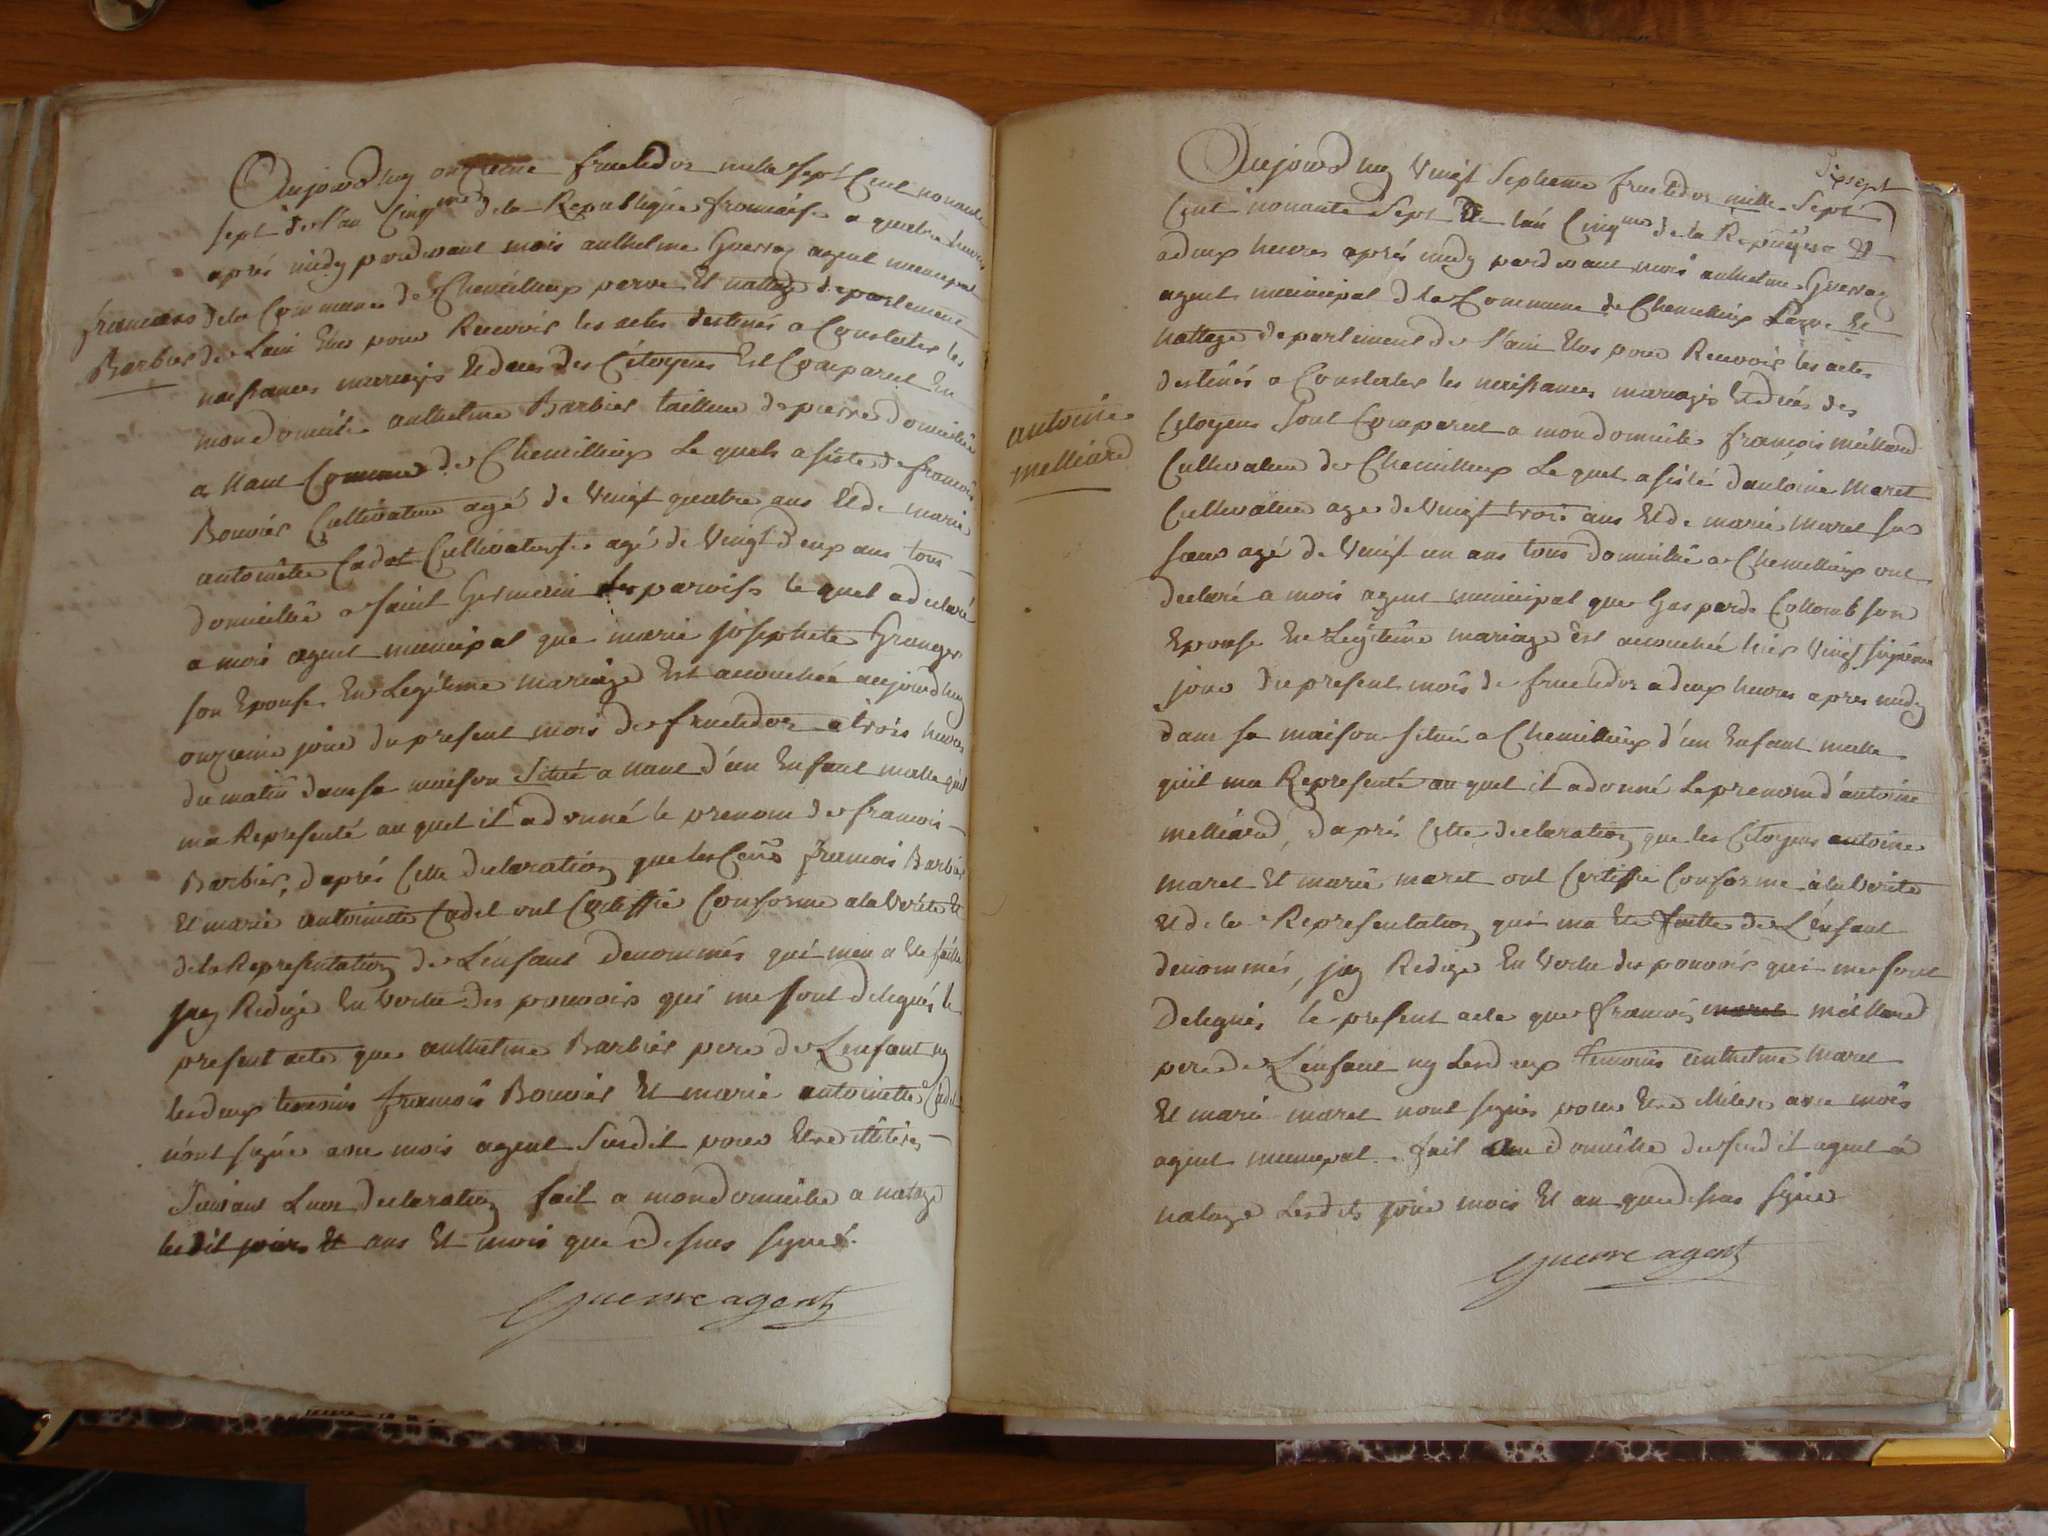 Aujourdhuy onzieme fructidor mille sept Cent nonante
sept de l'an Cinqme de la Republique francoise a quatre heures
aprés midy pardevant mois anthelme Guerre agent municipal
francois
Barbier
dela Commune de Chemillieux parve Et nattage departement
de Lain Elus pour Recevoir les actes destinés a Constater les
naissances mariages Et deces des Citoyens Est Comparut En
mon domicile anthelme Barbier tailleur de pierre domicilié
a Nant Commune de Chemillieux Le quels asisté de francois
Bouvier Cultivateur agé de Vingt quatre ans Et de marie
antoinette Cadet Cultivatrise agé de Vingt deux ans tous
domicilié a saint Germain les paroiss le quel a declaré
a mois agent municipal que marie josephete Granger
son Epouse En Legitime mariage Est acouchée aujourdhuy
onzieme jour du present mois de fructidor a trois heures
du matin dans sa maison Situé a nant d'un Enfant malle quil
ma Representé au quel il a donné le prenom de francois
Barbier, daprés Cette declaration que les Cens francois Barbier
Et marie antoinette Cadet ont Certiffié Conforme a la Verite Et
dela Representation de L'enfant denommés qui men a Ete faitte
jay Redigé En Vertu des pouvoirs qui me sont delegués le
present acte que anthelme Barbier pere de L'enfant ny
les deux temoins francois Bouvier Et marie antoinette Cadet
n'ont signé avec mois agent Susdit pour Etre illiteres
Suivant Leur declaration fait a mon domicile a natage
les dit jours Et ans Et mois que desus signé.
Guerre agent
Dixsept
Aujourdhuy Vingt Septieme fructidor mille Sept
Cent nonante Sept De lan Cinqme de la Republique
a deux heures aprés midy pardevant mois anthelme Guerre
agent municipal de la Commune de Chemillieux parve Et
Nattage departement de l'ain Elus pour Recevoir les actes
destinés a Constater les naissances mariages Et deces des
Citoyens Sont Comparut a mon domicile francois meilland
antoine
melliard
Cultivateur de Chemillieux Le quel asisté dantoine Maret
Cultivateur age de Vingt trois ans Et de marie Maret sa
soeur agé de Vingt un ans tous domicilié a Chemillieux ont
declaré a mois agent municipal que Gasparde Collomb son
Epouse En Legitime mariage Est acouchée hier Vingt sixieme
jour du present mois de fructidor a deux heures apres midy
dans sa maison situé a Chemillieux d'un Enfant malle
quil ma Representé au quel il a donné Le prenom d'antoine
melliard, daprés Cette declaration que les Citoyens antoine
maret Et marie maret ont Certiffié Conforme a la Verite
Et de la Representation qui ma Ete faitte de L'enfant
denommés, jay Redigé En Vertu des pouvoir qui me sont
Delegués le present acte que francois maret meilland
pere de L'enfant ny Les deux temoins anthelme Maret
Et marie maret nont signés pour Etre illitere avec mois
agent municipal. fait Au domicile du susdit agent a
natage Lesdits jour mois Et an que desus signé
Guerre agent